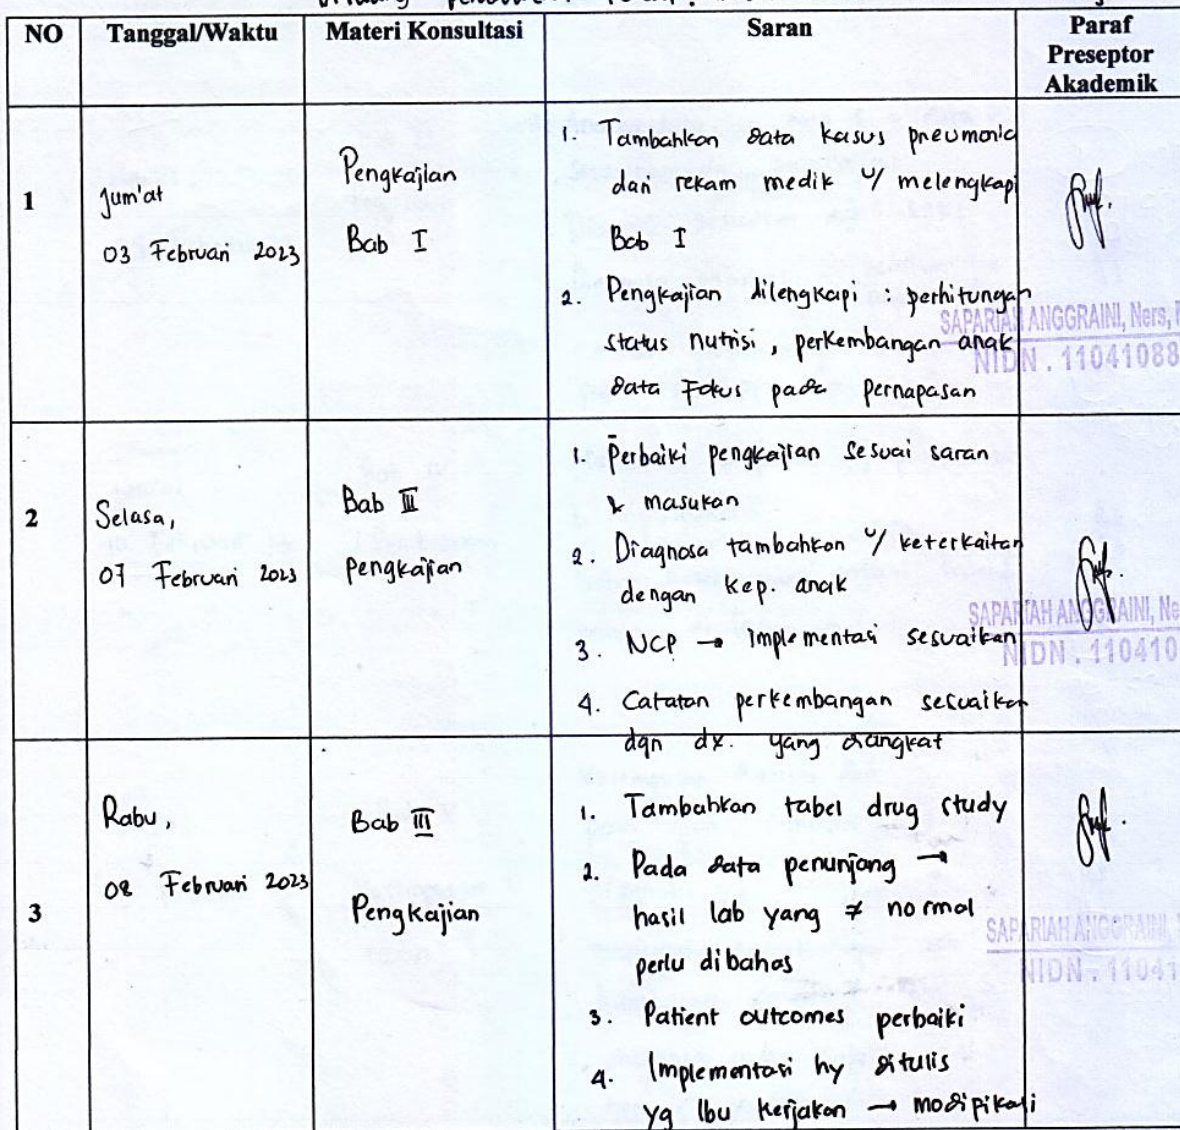 NO Tanggal/Waktu Materi Konsultasi Saran Paraf
Preseptor
Akademik
1
Jum'at
03 Februari 2023
Pengkajian
Bab I
1. Tambahkan data kasus pneumonia
dari rekam medik u/ melengkapi
Bab I
2. Pengkajian dilengkapi : perhitungan
status nutrisi, perkembangan anak
data Fokus pada pernapasan
SAPARIAH ANGGRAINI, Ners,
NIDN . 11041088
2
Selasa,
07 Februari 2023
Bab III
pengkajian
1. Perbaiki pengkajian sesuai saran
& masukan
2. Diagnosa tambahkan u/ keterkaitan
dengan kep. anak
3. NCP → implementasi sesuaikan
4. Catatan perkembangan sesuaikan
dgn dx. yang diangkat
SAPARIAH ANGGRAINI, Ne
NIDN . 110410
3
Rabu,
08 Februari 2023
Bab III
Pengkajian
1. Tambahkan tabel drug study
2. Pada data penunjang →
hasil lab yang ≠ normal
perlu dibahas
3. Patient outcomes perbaiki
4. Implementasi hy ditulis
yg Ibu kerjakan → modipikasi
SAPARIAH ANGGRAINI,
NIDN . 11041